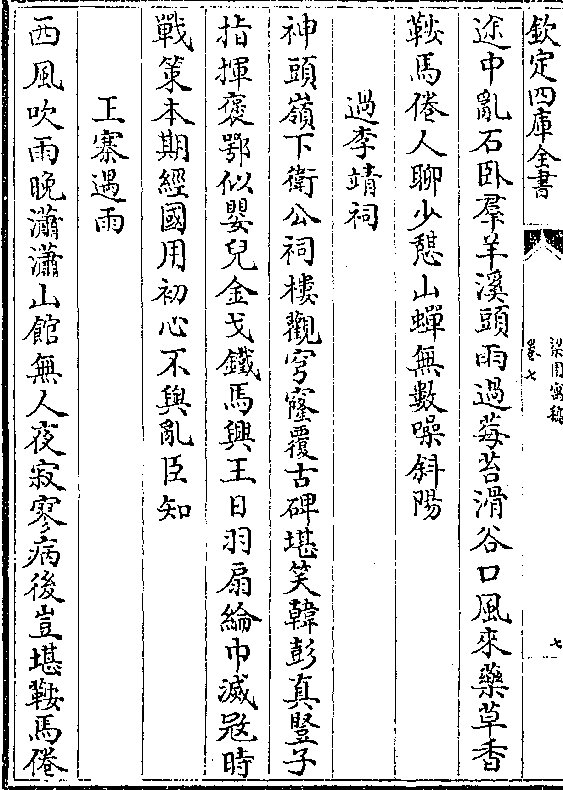 欽定四庫全書
梁園寓稿
卷七
七
途中亂石卧羣羊溪頭雨過莓苔滑谷口風來藥草香
鞍馬倦人聊少憇山蟬無數噪斜陽
過李靖祠
神頭嶺下衛公祠樓觀穹窿覆古碑堪笑韓彭真豎子
指揮褒鄂似嬰兒金戈鐵馬興王日羽扇綸巾滅宼時
戰策本期經國用初心不與亂臣知
王寨遇雨
西風吹雨晚瀟瀟山館無人夜寂寥病後豈堪鞍馬倦